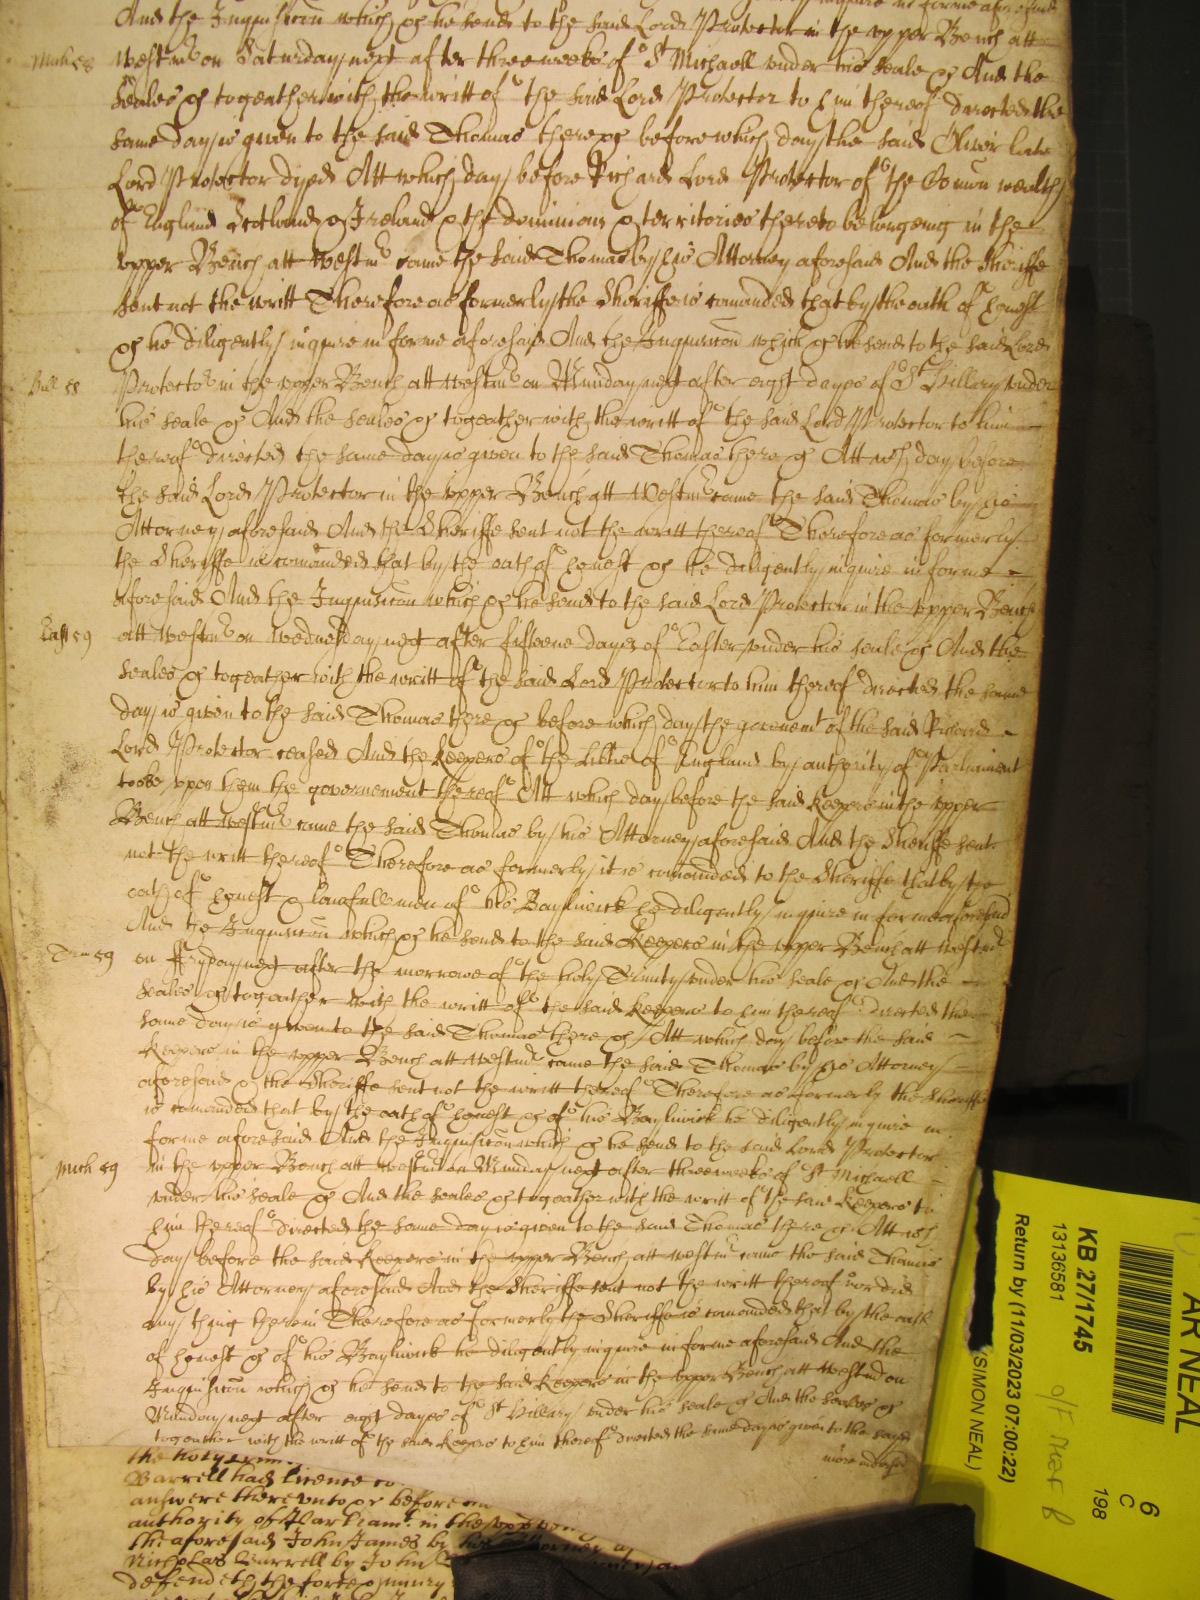 And the Inquisicon which &c he send to the said Lord Protector in the upper Bench att
Mich 58
Westmr on Saturday next after three weeks of St Michaell under his seale &c And the
seales &c togeather with the writt of the said Lord Protector to him thereof directed the
same day is given to the said Thomas there &c before which day the said Oliver late
Lord Protector dyed Att which day before Richard Lord Protector of the Comon wealth
of England Scotland & Ireland & the dominions & territories thereto belongeing in the
upper Bench att Westmr came the said Thomas by his Attorney aforesaid And the Sheriffe
sent not the writt Therefore as formerly the Sheriffe is comanded that by the oath of honest
&c he diligently inquire in forme aforesaid And the Inquisicon which &c he send to the said Lord
Hill 58
Protector in the upper Bench att Westmr on Munday next after eight dayes of St Hillary under
his seale &c And the seales &c togeather with the writt of the said Lord Protector to him
thereof directed the same day is given to the said Thomas there &c Att wch day before
the said Lord Protector in the upper Bench att Westmr came the said Thomas by his
Attorney aforesaid And the Sheriffe sent not the writt thereof Therefore as formerly
the Sheriffe is comanded that by the oath of honest &c he diligently inquire in forme
aforesaid And the Inquisicon which &c he send to the said Lord Protector in the upper Bench
East 59
att Westmr on Wednesday next after fifteene dayes of Easter under his seale &c And the
seales &c togeather with the writt of the said Lord Protector to him thereof directed the same
day is given to the said Thomas there &c before which day the govermt of the said Richard
Lord Protector ceased And the Keepers of the Libtie of England by authority of Parliament
tooke upon them the governement thereof Att which day before the said Keepers in the upper
Bench att Westmr came the said Thomas by his Attorney aforesaid And the Sheriffe sent
not the writt thereof Therefore as formerly it is comanded to the Sheriffe that by the
oath of honest & lawfull men of his Bayliwick he diligently inquire in forme aforesaid
And the Inquisicon which &c he send to the said Keepers in the upper Bench att Westmr
Trin 59
on ffryday next after the morrowe of the holy Trinity under his seale &c And the
seales &c togeather with the writt of the said Keepers to him thereof directed the
same day is given to the said Thomas there &c Att which day before the said
Keepers in the upper Bench att Westmr came the said Thomas by his Attorney
aforesaid & the Sheriffe sent not the writt thereof Therefore as formerly the Sheriffe
is comanded that by the oath of honest &c of his Bayliwick he diligently inquire in
forme aforesaid And the Inquisicon which &c he send to the said Lord Protector
Mich 59
in the upper Bench att Westmr on Munday next after three weeks of St Michaell
under his seale &c And the seales &c togeather with the writt of the said Keepers to
him thereof directed the same day is given to the said Thomas there &c Att wch
day before the said Keepers in the upper Bench att Westmr came the said Thomas
by his Attorney aforesaid And the Sheriffe sent not the writt thereof nor did
any thing therein Therefore as formerly the Sheriffe is comanded that by the oath
of honest &c of his Bayliwick he diligently inquire in forme aforesaid And the
Inquisicon which &c he send to the said Keepers in the upper Bench att Westmr on
Munday next after eight dayes of St Hillary under his seale &c And the seales &c
togeather with the writt of the said Keepers to him thereof directed the same day is given to the said
more
the holy
Barrell had licence to
answere there unto &c before
authority of Parliamt in the upp
the aforesaid John James by his
Nicholas Burrell by John
defendeth the force & iniury
AR NEAL
6
C
198
KB 27/1745
13136581
Return by (11/03/2023 07:00:22)
(SIMON NEAL)